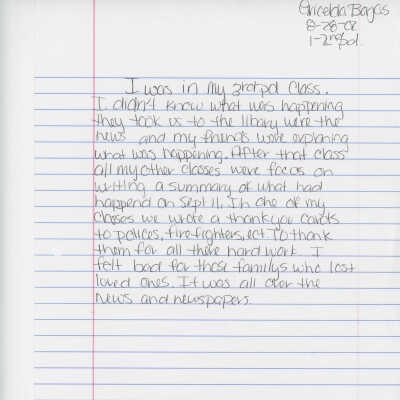 Gricelda Bagas
8-28-02
1-2nd pd.
I was in my 3rd pd class.
I didn't know what was happening
they took us to the libary were the
news and my friends were explaning
what was happening. After that class
all my other classes were focus on
writting a summary of what had
happend on Sept 11. In one of my
clases we wrote a thank you cards
to polices, firefighters, ect To thank
them for all there hard work. I
felt bad for those familys who lost
loved ones. It was all over the
news and newspapers.